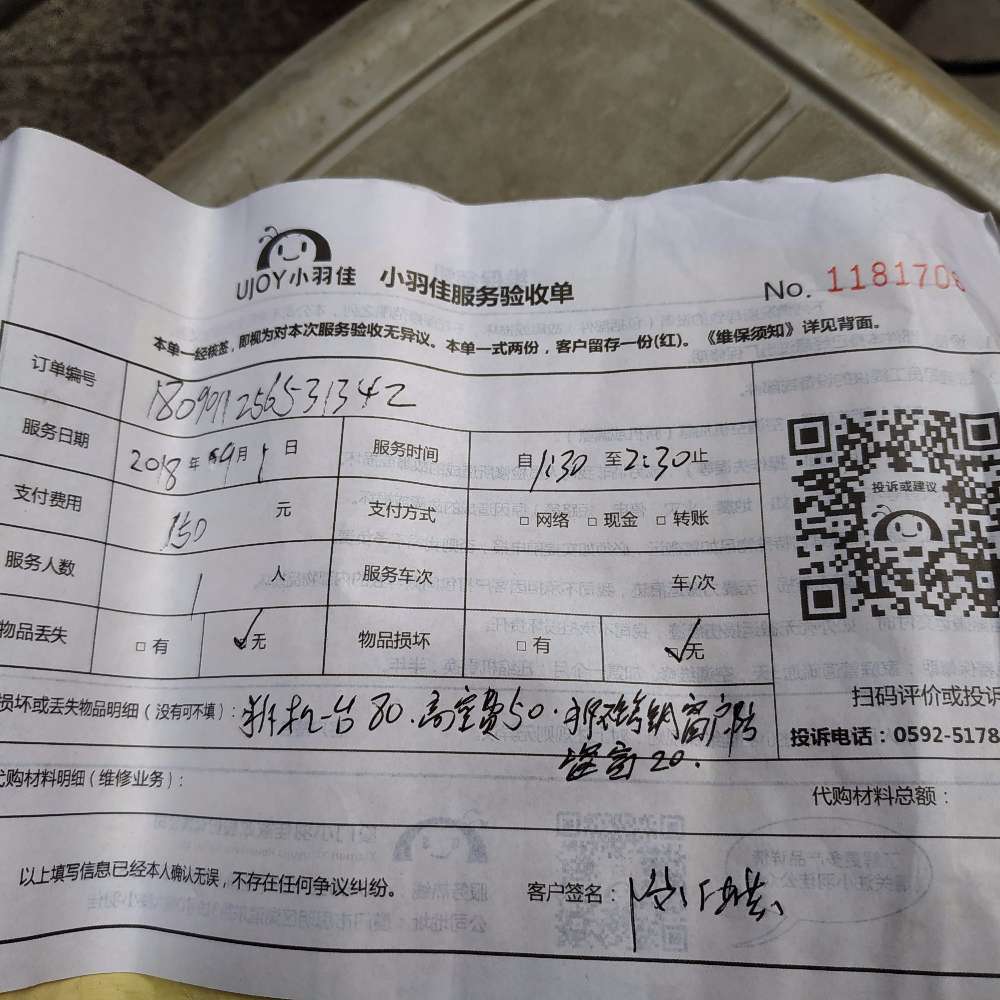 UJOY小羽佳 小羽佳服务验收单 No. 1181708
本单一经核签，即视为对本次服务验收无异议。本单一式两份，客户留存一份(红)。《维保须知》详见背面。
订单编号
服务日期 2018年9月1日 服务时间 自1:30至2:30止
投诉或建议
支付费用 150元 支付方式 □网络 □现金 □转账
服务人数 1人 服务车次 车/次
物品丢失 □有 ✓无 物品损坏 □有 ✓无
扫码评价或投诉
损坏或丢失物品明细（没有可不填）：拆机一台80.高空费50.拆不锈钢窗户防
20.
投诉电话：0592-5178
代购材料明细（维修业务）： 代购材料总额：
以上填写信息已经本人确认无误，不存在任何争议纠纷。 客户签名：